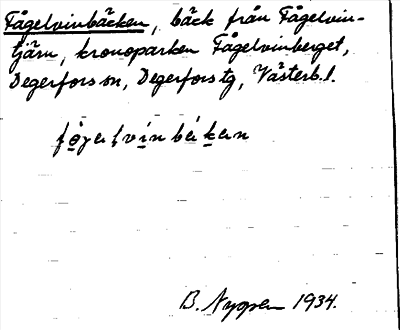 Fågelvinbäcken, bäck från Fågelvin-
tjärn, kronoparken Fågelvinberget,
Degerfors sn, Degerfors tg, Västerb. l.
B. Nygren 1934.